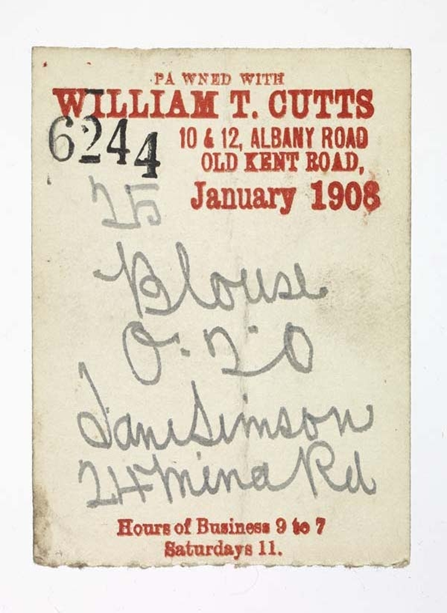 PAWNED WITH
WILLIAM T. CUTTS
6244
10 & 12, ALBANY ROAD
OLD KENT ROAD,
January 1908
25
Blouse
0 - 2 - 0
Jane Simson
24 Mina Rd
Hours of Business 9 to 7
Saturdays 11.